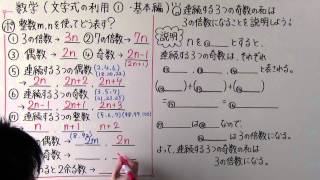 数学(文字式の利用①・基本編)
整数m,nを使ってどう表す?
① 3の倍数→ 3n ② 7の倍数→ 7n
③ 偶数→ 2n ④ 奇数→ 2n-1
(2n+1)
⑤ 連続する3つの偶数 (2,4,6)
2n, 2n+2, 2n+4
⑥ 連続する3つの奇数 (3,5,7)
2n-1, 2n+1, 2n+3
⑦ 連続する3つの整数 (5,6,7)(98,99,100)
n, n+1, n+2
の偶数→ 2m, 2n
の奇数→
わると2余る数→
連続する3つの奇数の和は
3の倍数になることを説明しよう
説明
nを とすると、
連続する3つの奇数は、それぞれ
と表される。
( )+( )+( )
=
= ( )
は なので、
( )は3の倍数になる。
よって、連続する3つの奇数の和は
3の倍数になる。